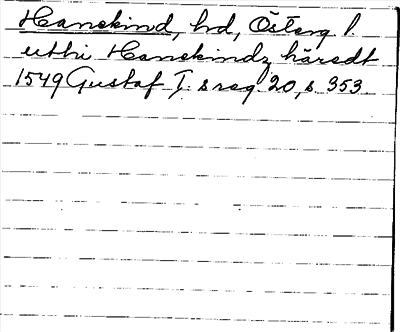 Hanekind, hd, Österg l.
utthi Hanekindz häredt
1549 Gustaf I:s reg. 20, s. 353.